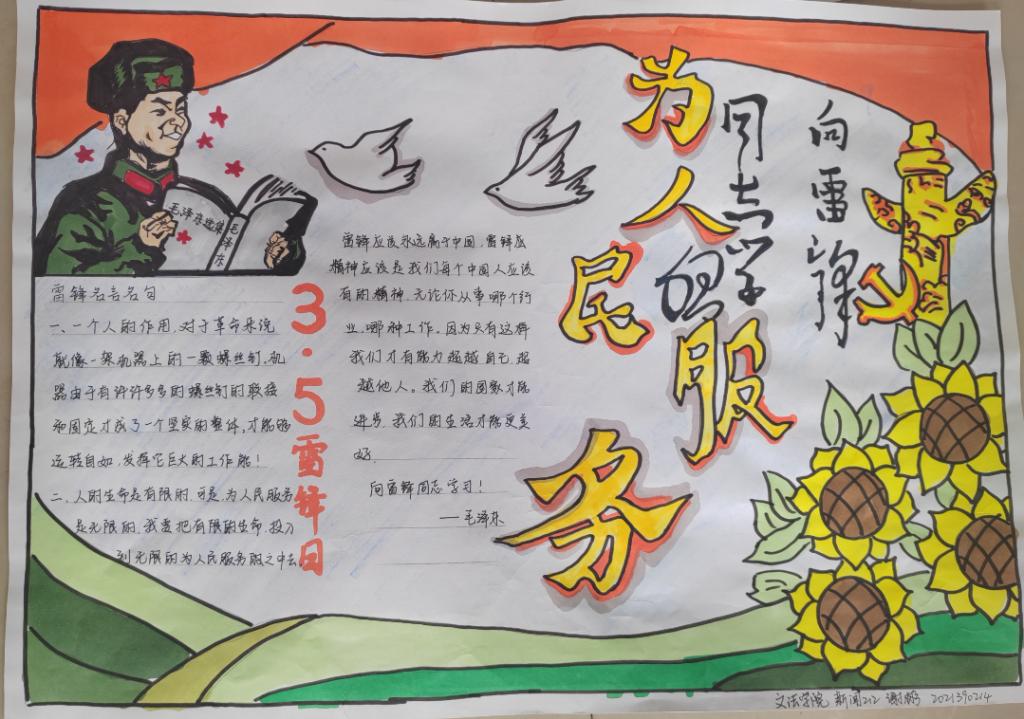 向雷锋
同志学习
为人民服务
毛泽东选集
毛泽东
雷锋名言名句
一、一个人的作用,对于革命来说
就像一架机器上的一颗螺丝钉,机
器由于有许许多多的螺丝钉的联接
和固定才成了一个坚实的整体,才能够
运转自如,发挥它巨大的工作能!
二、人的生命是有限的,可是,为人民服务
是无限的,我要把有限的生命,投入
到无限的为人民服务的之中去。
3·5雷锋日
雷锋应该永远属于中国,雷锋
精神应该是我们每个中国人应该
有的精神,无论你从事哪个行
业,哪种工作。因为只有这样
我们才有能力超越自己,超
越他人。我们的国家才能
进步,我们的生活才能更美
好。
向雷锋同志学习!
——毛泽东
文法学院 新闻212 谢 2021390214